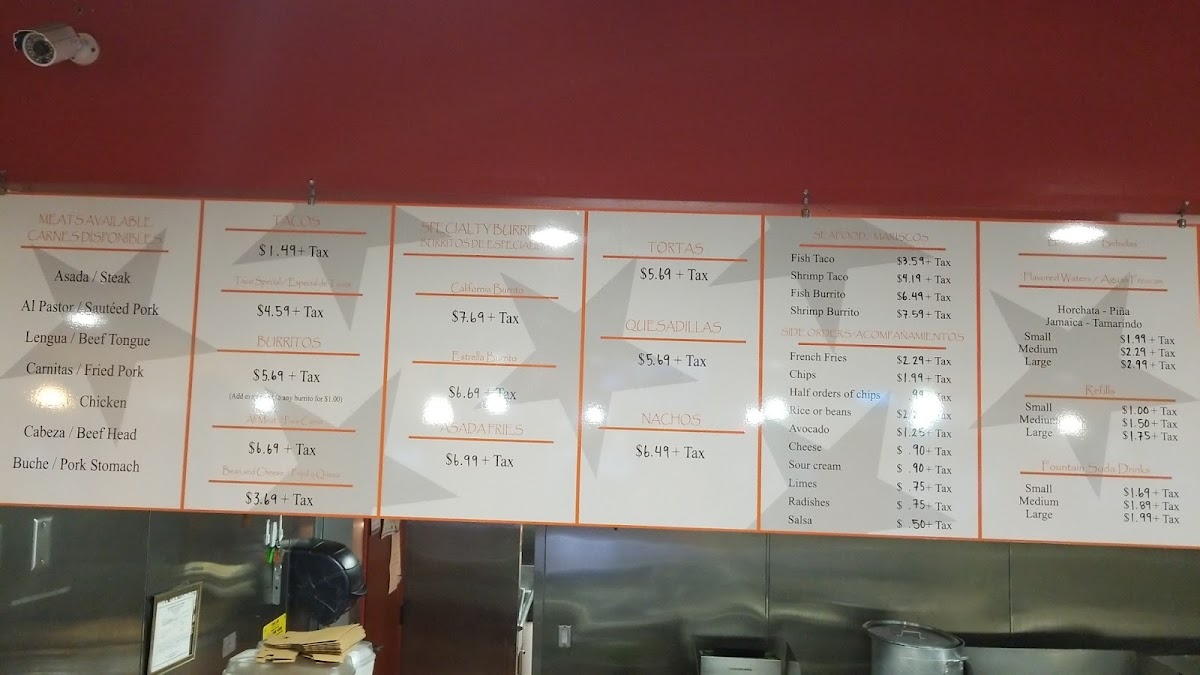 MEATS AVAILABLE
CARNES DISPONIBLES
Asada / Steak
Al Pastor / Sautéed Pork
Lengua / Beef Tongue
Carnitas / Fried Pork
Chicken
Cabeza / Beef Head
Buche / Pork Stomach
TACOS
$1.49 + Tax
Taco Special / Especial de Tacos
$4.59 + Tax
BURRITOS
$5.69 + Tax
any burrito for $1.00)
All Meat
$6.69 + Tax
Bean and Cheese / Frijol y Queso
$3.69 + Tax
SPECIALTY
BURRITOS DE
California Burrito
$7.69 + Tax
Estrella Burrito
$6.69 + Tax
ASADA FRIES
$6.99 + Tax
TORTAS
$5.69 + Tax
QUESADILLAS
$5.69 + Tax
NACHOS
$6.49 + Tax
SEAFOOD / MARISCOS
Fish Taco $3.59 + Tax
Shrimp Taco $4.19 + Tax
Fish Burrito $6.49 + Tax
Shrimp Burrito $7.59 + Tax
SIDE ORDERS / ACOMPAÑAMIENTOS
French Fries $2.29 + Tax
Chips $1.99 + Tax
Half orders of chips .99 + Tax
Rice or beans + Tax
Avocado $1.25 + Tax
Cheese $ .90 + Tax
Sour cream $ .90 + Tax
Limes $ .75 + Tax
Radishes $ .75 + Tax
Salsa $ .50 + Tax
Bebidas
Flavored Waters / Aguas Frescas
Horchata - Piña
Jamaica - Tamarindo
Small $1.99 + Tax
Medium $2.29 + Tax
Large $2.99 + Tax
Refills
Small $1.00 + Tax
Medium $1.50 + Tax
Large $1.75 + Tax
Fountain Soda Drinks
Small $1.69 + Tax
Medium $1.89 + Tax
Large $1.99 + Tax